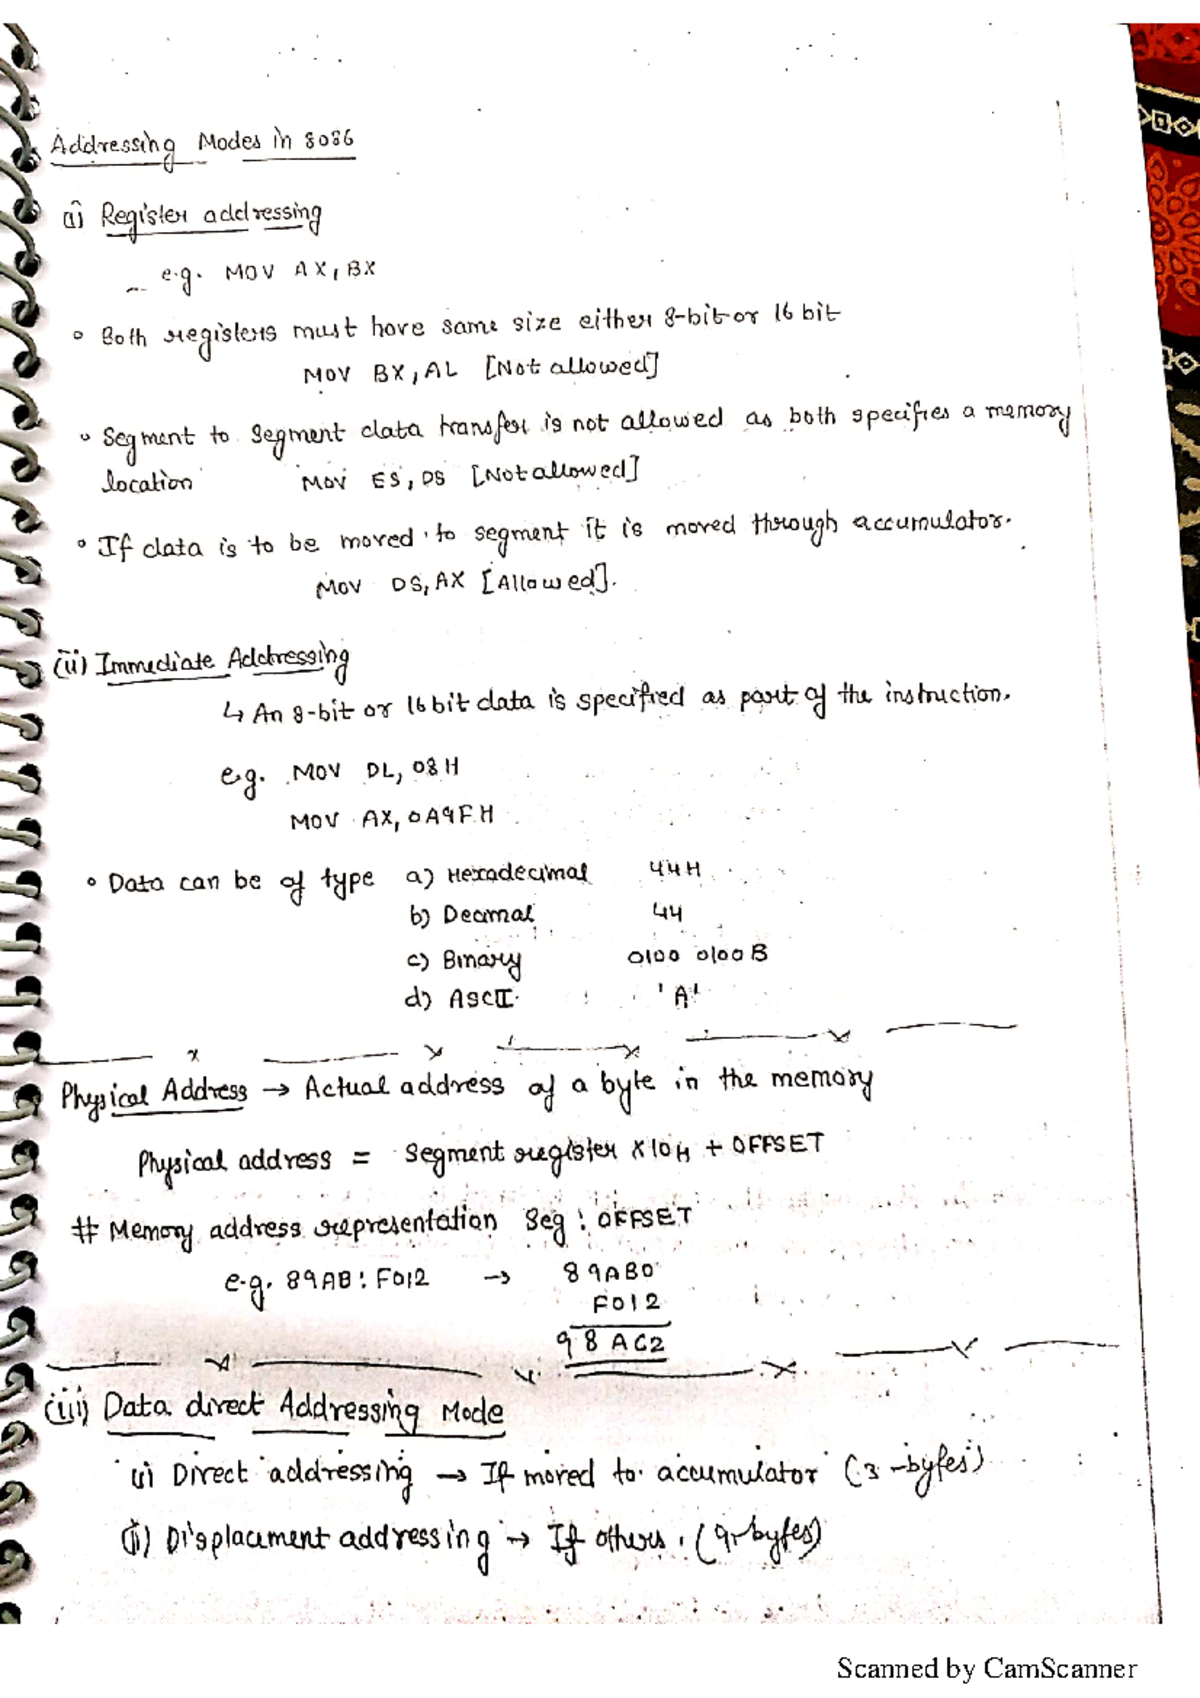 Addressing Modes in 8086
(i) Register addressing
e.g. MOV AX, BX
• Both registers must have same size either 8-bit or 16 bit
MOV BX, AL [Not allowed]
• Segment to segment data transfer is not allowed as both specifies a memory
location MOV ES, DS [Not allowed]
• If data is to be moved to segment it is moved through accumulator.
MOV DS, AX [Allowed].
(ii) Immediate Addressing
↳ An 8-bit or 16 bit data is specified as part of the instruction.
e.g. MOV DL, 08H
MOV AX, 0A9FH
• Data can be of type a) Hexadecimal 44H
b) Decimal 44
c) Binary 0100 0100B
d) ASCII 'A'
Physical Address → Actual address of a byte in the memory
Physical address = Segment register X 10H + OFFSET
# Memory address representation Seg : OFFSET
e.g. 89AB : F012 → 89AB0
F012
98AC2
(iii) Data direct Addressing Mode
(i) Direct addressing → If moved to accumulator (3-bytes)
(ii) Displacement addressing → If others. (4-bytes)
Scanned by CamScanner